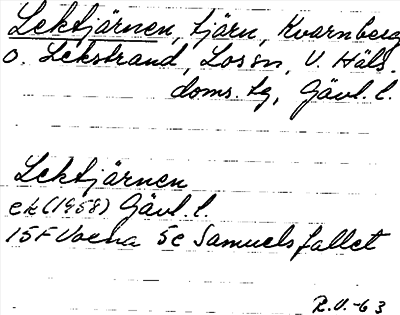 Lektjärnen, tjärn, Kvarnberg
o. Lekstrand, Lossn, V. Häls.
doms. tg, Gävl. l.
Lektjärnen
ek (1958) Gävl. l.
15F Voxna 5c Samuelsfallet
R.V.-63